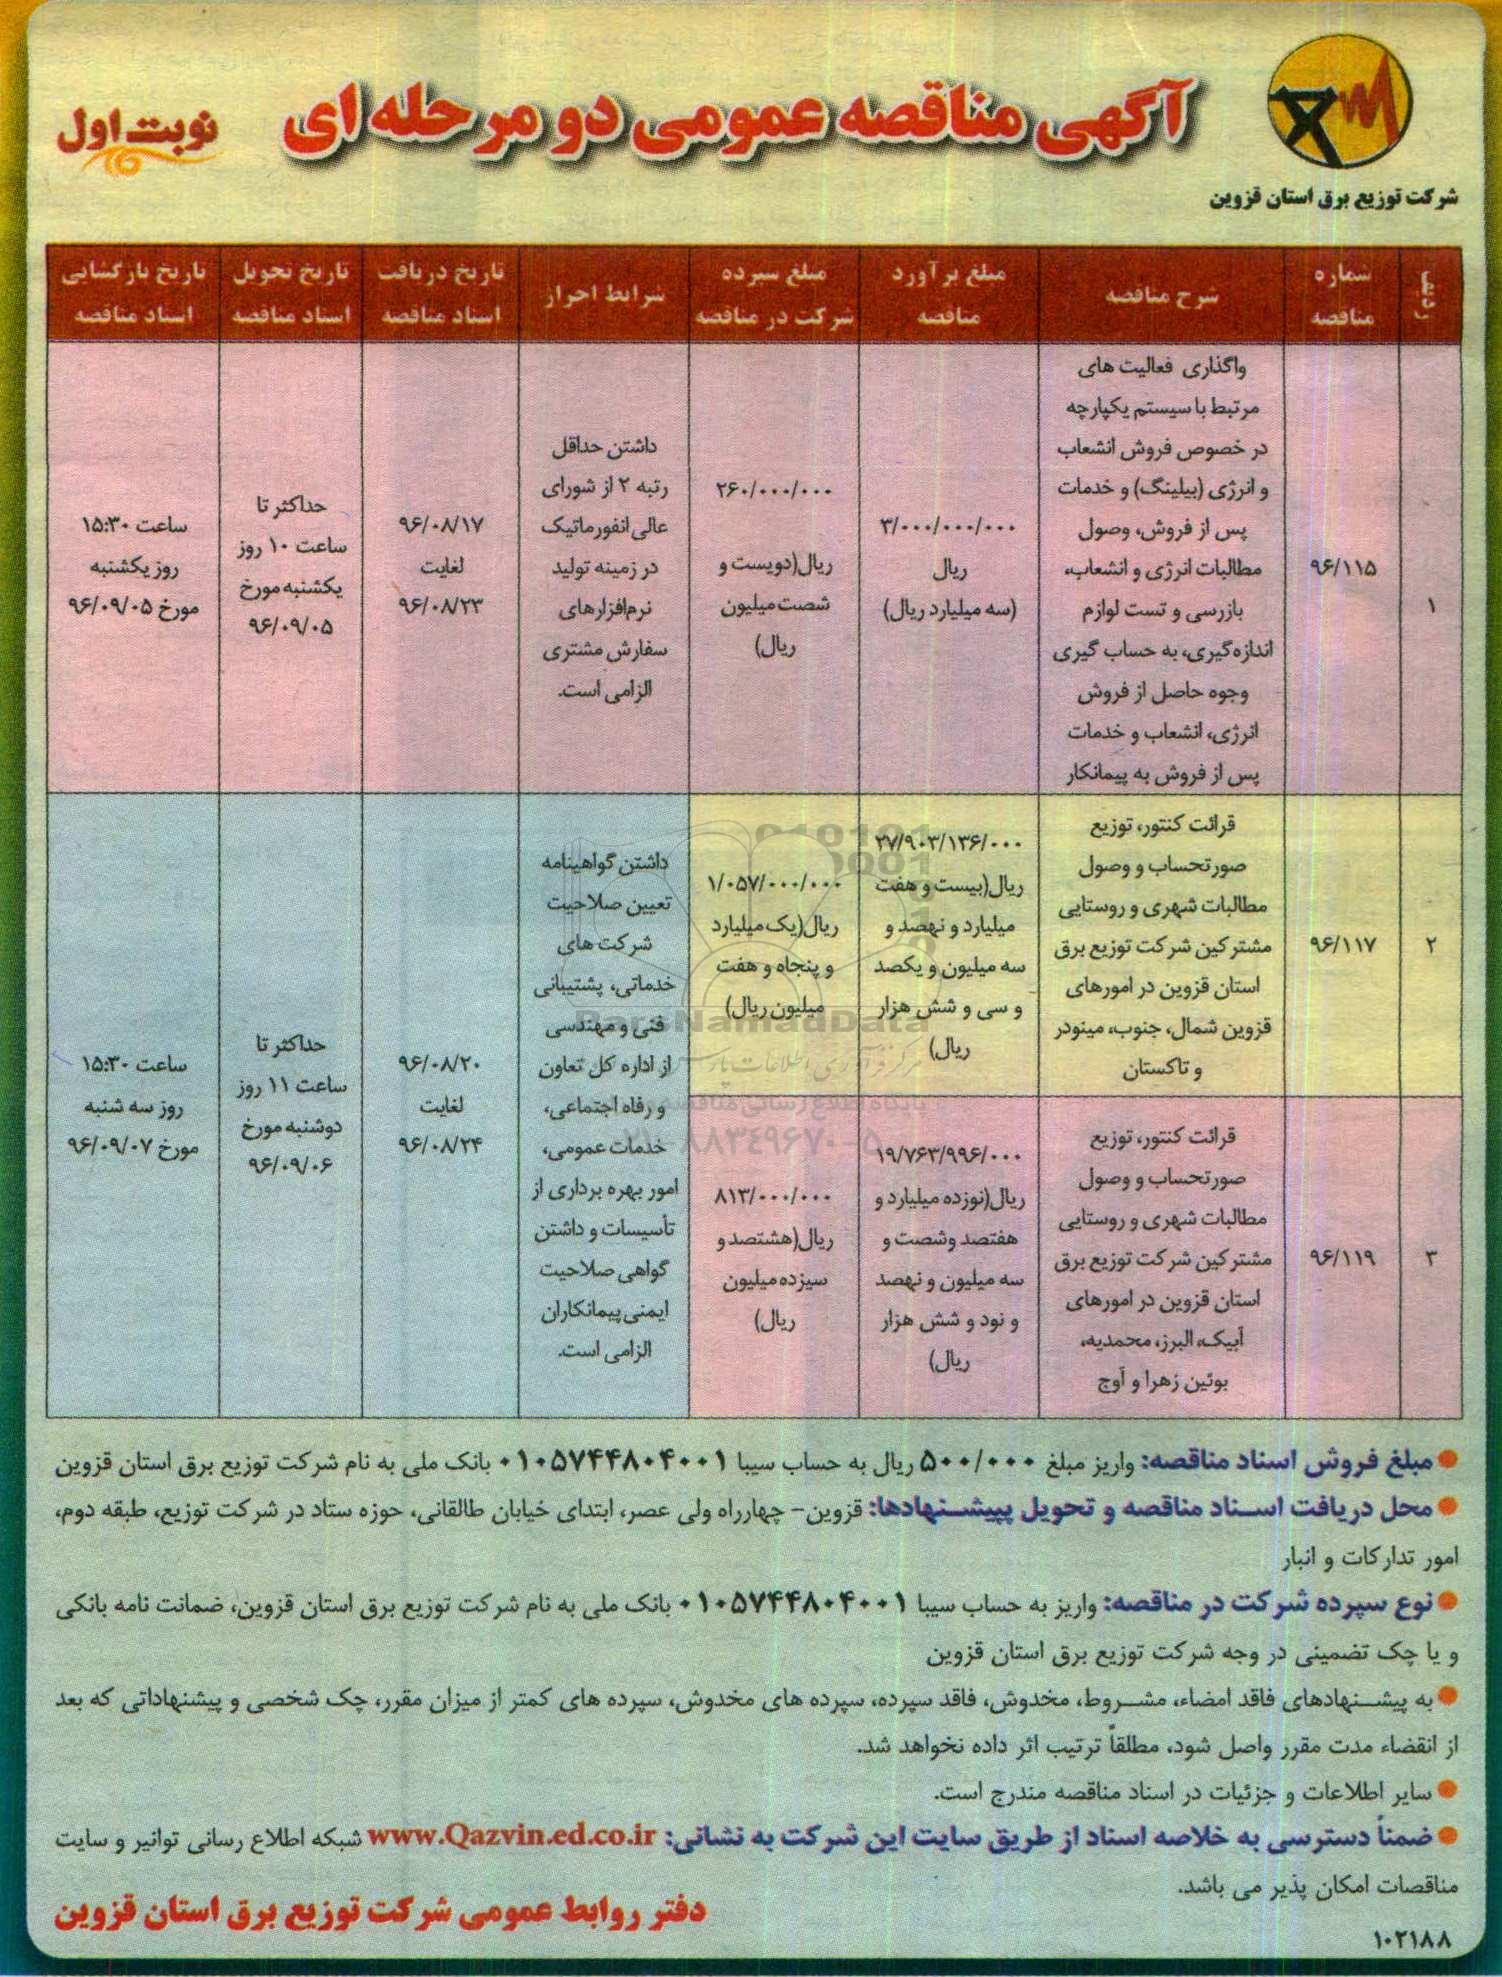 آگهی مناقصه عمومی دو مرحله ای
نوبت اول
شرکت توزیع برق استان قزوین
ردیف
شماره
مناقصه
شرح مناقصه
مبلغ برآورد
مناقصه
مبلغ سپرده
شرکت در مناقصه
شرایط احراز
تاریخ دریافت
اسناد مناقصه
تاریخ تحویل
اسناد مناقصه
تاریخ بازگشایی
اسناد مناقصه
۱
۹۶/۱۱۵
واگذاری فعالیت های
مرتبط با سیستم یکپارچه
در خصوص فروش انشعاب
و انرژی (بیلینگ) و خدمات
پس از فروش، وصول
مطالبات انرژی و انشعاب،
بازرسی و تست لوازم
اندازه‌گیری، به حساب گیری
وجوه حاصل از فروش
انرژی، انشعاب و خدمات
پس از فروش به پیمانکار
۳/۰۰۰/۰۰۰/۰۰۰
ریال
(سه میلیارد ریال)
۲۶۰/۰۰۰/۰۰۰
ریال(دویست و
شصت میلیون
ریال)
داشتن حداقل
رتبه ۲ از شورای
عالی انفورماتیک
در زمینه تولید
نرم‌افزارهای
سفارش مشتری
الزامی است.
۹۶/۰۸/۱۷
لغایت
۹۶/۰۸/۲۳
حداکثر تا
ساعت ۱۰ روز
یکشنبه مورخ
۹۶/۰۹/۰۵
ساعت ۱۵:۳۰
روز یکشنبه
مورخ ۹۶/۰۹/۰۵
۲
۹۶/۱۱۷
قرائت کنتور، توزیع
صورتحساب و وصول
مطالبات شهری و روستایی
مشترکین شرکت توزیع برق
استان قزوین در امورهای
قزوین شمال، جنوب، مینودر
و تاکستان
۲۷/۹۰۳/۱۳۶/۰۰۰
ریال(بیست و هفت
میلیارد و نهصد و
سه میلیون و یکصد
و سی و شش هزار
ریال)
۱/۰۵۷/۰۰۰/۰۰۰
ریال(یک میلیارد
و پنجاه و هفت
میلیون ریال)
داشتن گواهینامه
تعیین صلاحیت
شرکت های
خدماتی، پشتیبانی
فنی و مهندسی
از اداره کل تعاون
و رفاه اجتماعی،
خدمات عمومی،
امور بهره برداری از
تأسیسات و داشتن
گواهی صلاحیت
ایمنی پیمانکاران
الزامی است.
۹۶/۰۸/۲۰
لغایت
۹۶/۰۸/۲۴
حداکثر تا
ساعت ۱۱ روز
دوشنبه مورخ
۹۶/۰۹/۰۶
ساعت ۱۵:۳۰
روز سه شنبه
مورخ ۹۶/۰۹/۰۷
۳
۹۶/۱۱۹
قرائت کنتور، توزیع
صورتحساب و وصول
مطالبات شهری و روستایی
مشترکین شرکت توزیع برق
استان قزوین در امورهای
آبیک، البرز، محمدیه،
بوئین زهرا و آوج
۱۹/۷۶۳/۹۹۶/۰۰۰
ریال(نوزده میلیارد و
هفتصد و شصت و
سه میلیون و نهصد
و نود و شش هزار
ریال)
۸۱۳/۰۰۰/۰۰۰
ریال(هشتصد و
سیزده میلیون
ریال)
ParsNamadData
مرکز فرآوری اطلاعات پارس
پایگاه اطلاع رسانی مناقصه
۰۲۱-۸۸۳۴۹۶۷۰-۵
● مبلغ فروش اسناد مناقصه: واریز مبلغ ۵۰۰/۰۰۰ ریال به حساب سیبا ۰۱۰۵۷۴۴۸۰۴۰۰۱ بانک ملی به نام شرکت توزیع برق استان قزوین
● محل دریافت اسناد مناقصه و تحویل پیشنهادها: قزوین- چهارراه ولی عصر، ابتدای خیابان طالقانی، حوزه ستاد در شرکت توزیع، طبقه دوم،
امور تدارکات و انبار
● نوع سپرده شرکت در مناقصه: واریز به حساب سیبا ۰۱۰۵۷۴۴۸۰۴۰۰۱ بانک ملی به نام شرکت توزیع برق استان قزوین، ضمانت نامه بانکی
و یا چک تضمینی در وجه شرکت توزیع برق استان قزوین
● به پیشنهادهای فاقد امضاء، مشروط، مخدوش، فاقد سپرده، سپرده های مخدوش، سپرده های کمتر از میزان مقرر، چک شخصی و پیشنهاداتی که بعد
از انقضاء مدت مقرر واصل شود، مطلقاً ترتیب اثر داده نخواهد شد.
● سایر اطلاعات و جزئیات در اسناد مناقصه مندرج است.
● ضمناً دسترسی به خلاصه اسناد از طریق سایت این شرکت به نشانی: www.Qazvin.ed.co.ir شبکه اطلاع رسانی توانیر و سایت
مناقصات امکان پذیر می باشد.
دفتر روابط عمومی شرکت توزیع برق استان قزوین
۱۰۲۱۸۸